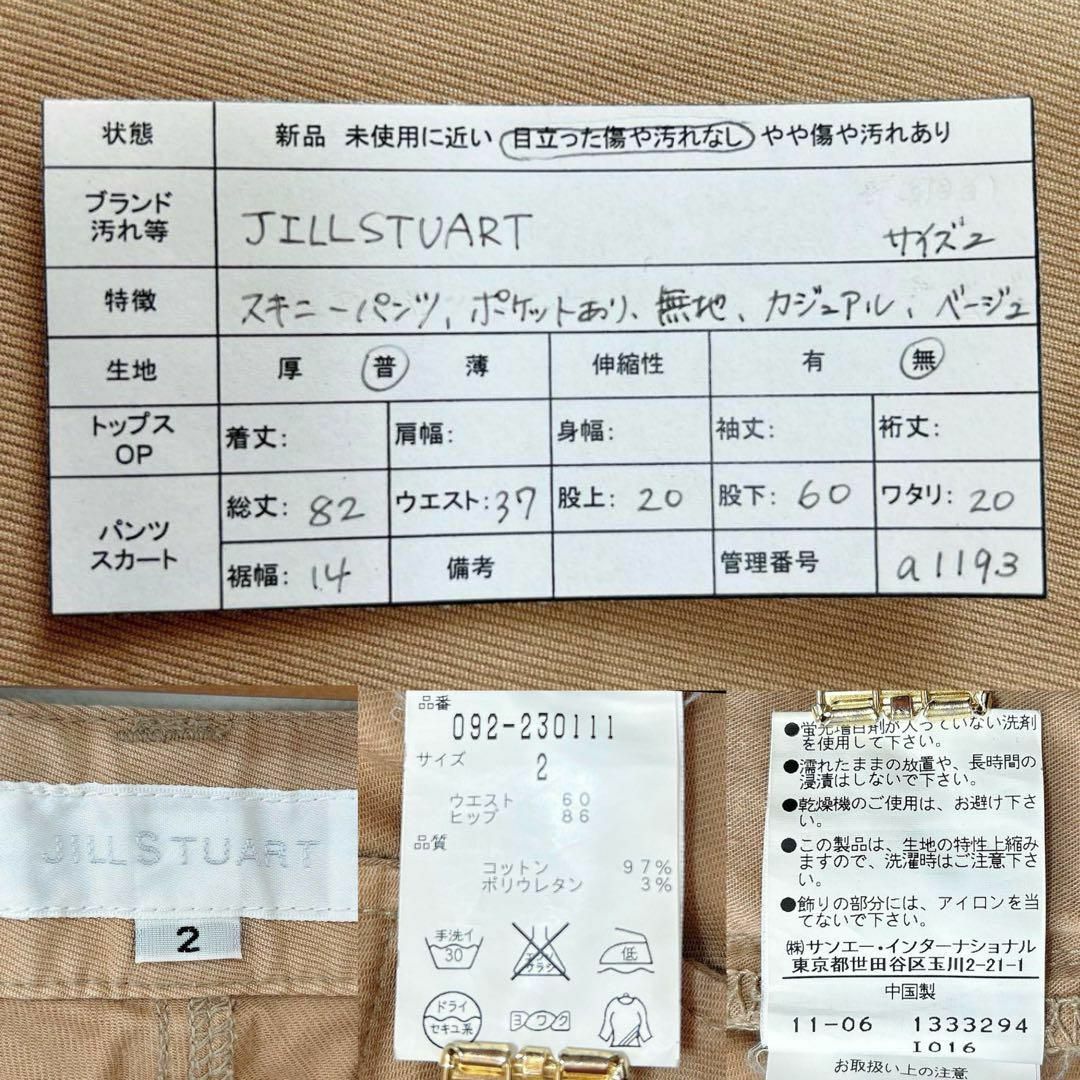 状態 新品 未使用に近い 目立った傷や汚れなし やや傷や汚れあり
ブランド
汚れ等 JILLSTUART サイズ2
特徴 スキニーパンツ、ポケットあり、無地、カジュアル、ベージュ
生地 厚 普 薄 伸縮性 有 無
トップス
OP 着丈: 肩幅: 身幅: 袖丈: 裄丈:
パンツ
スカート 総丈: 82 ウエスト: 37 股上: 20 股下: 60 ワタリ: 20
裾幅: 14 備考 管理番号 a1193
JILLSTUART
2
品番
092-230111
サイズ
2
ウエスト 60
ヒップ 86
品質
コットン 97%
ポリウレタン 3%
手洗イ
30
エンソ
サラシ
低
ドライ
セキユ系
ヨワク
●蛍光増白剤が入っていない洗剤
を使用して下さい。
●濡れたままの放置や、長時間の
浸漬はしないで下さい。
●乾燥機のご使用は、お避け下さ
い。
●この製品は、生地の特性上縮み
ますので、洗濯時はご注意下さ
い。
●飾りの部分には、アイロンを当
てないで下さい。
㈱サンエー・インターナショナル
東京都世田谷区玉川2-21-1
中国製
11-06 1333294
I016
お取扱い上の注意